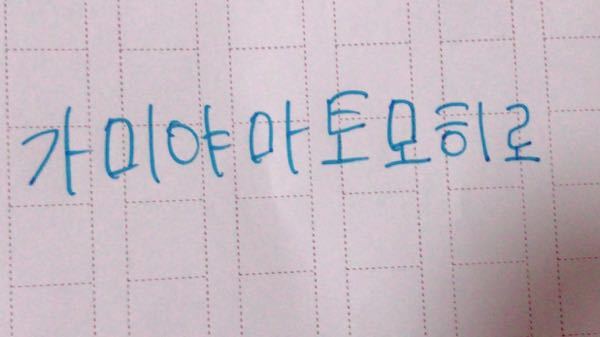 가미야마토모히로